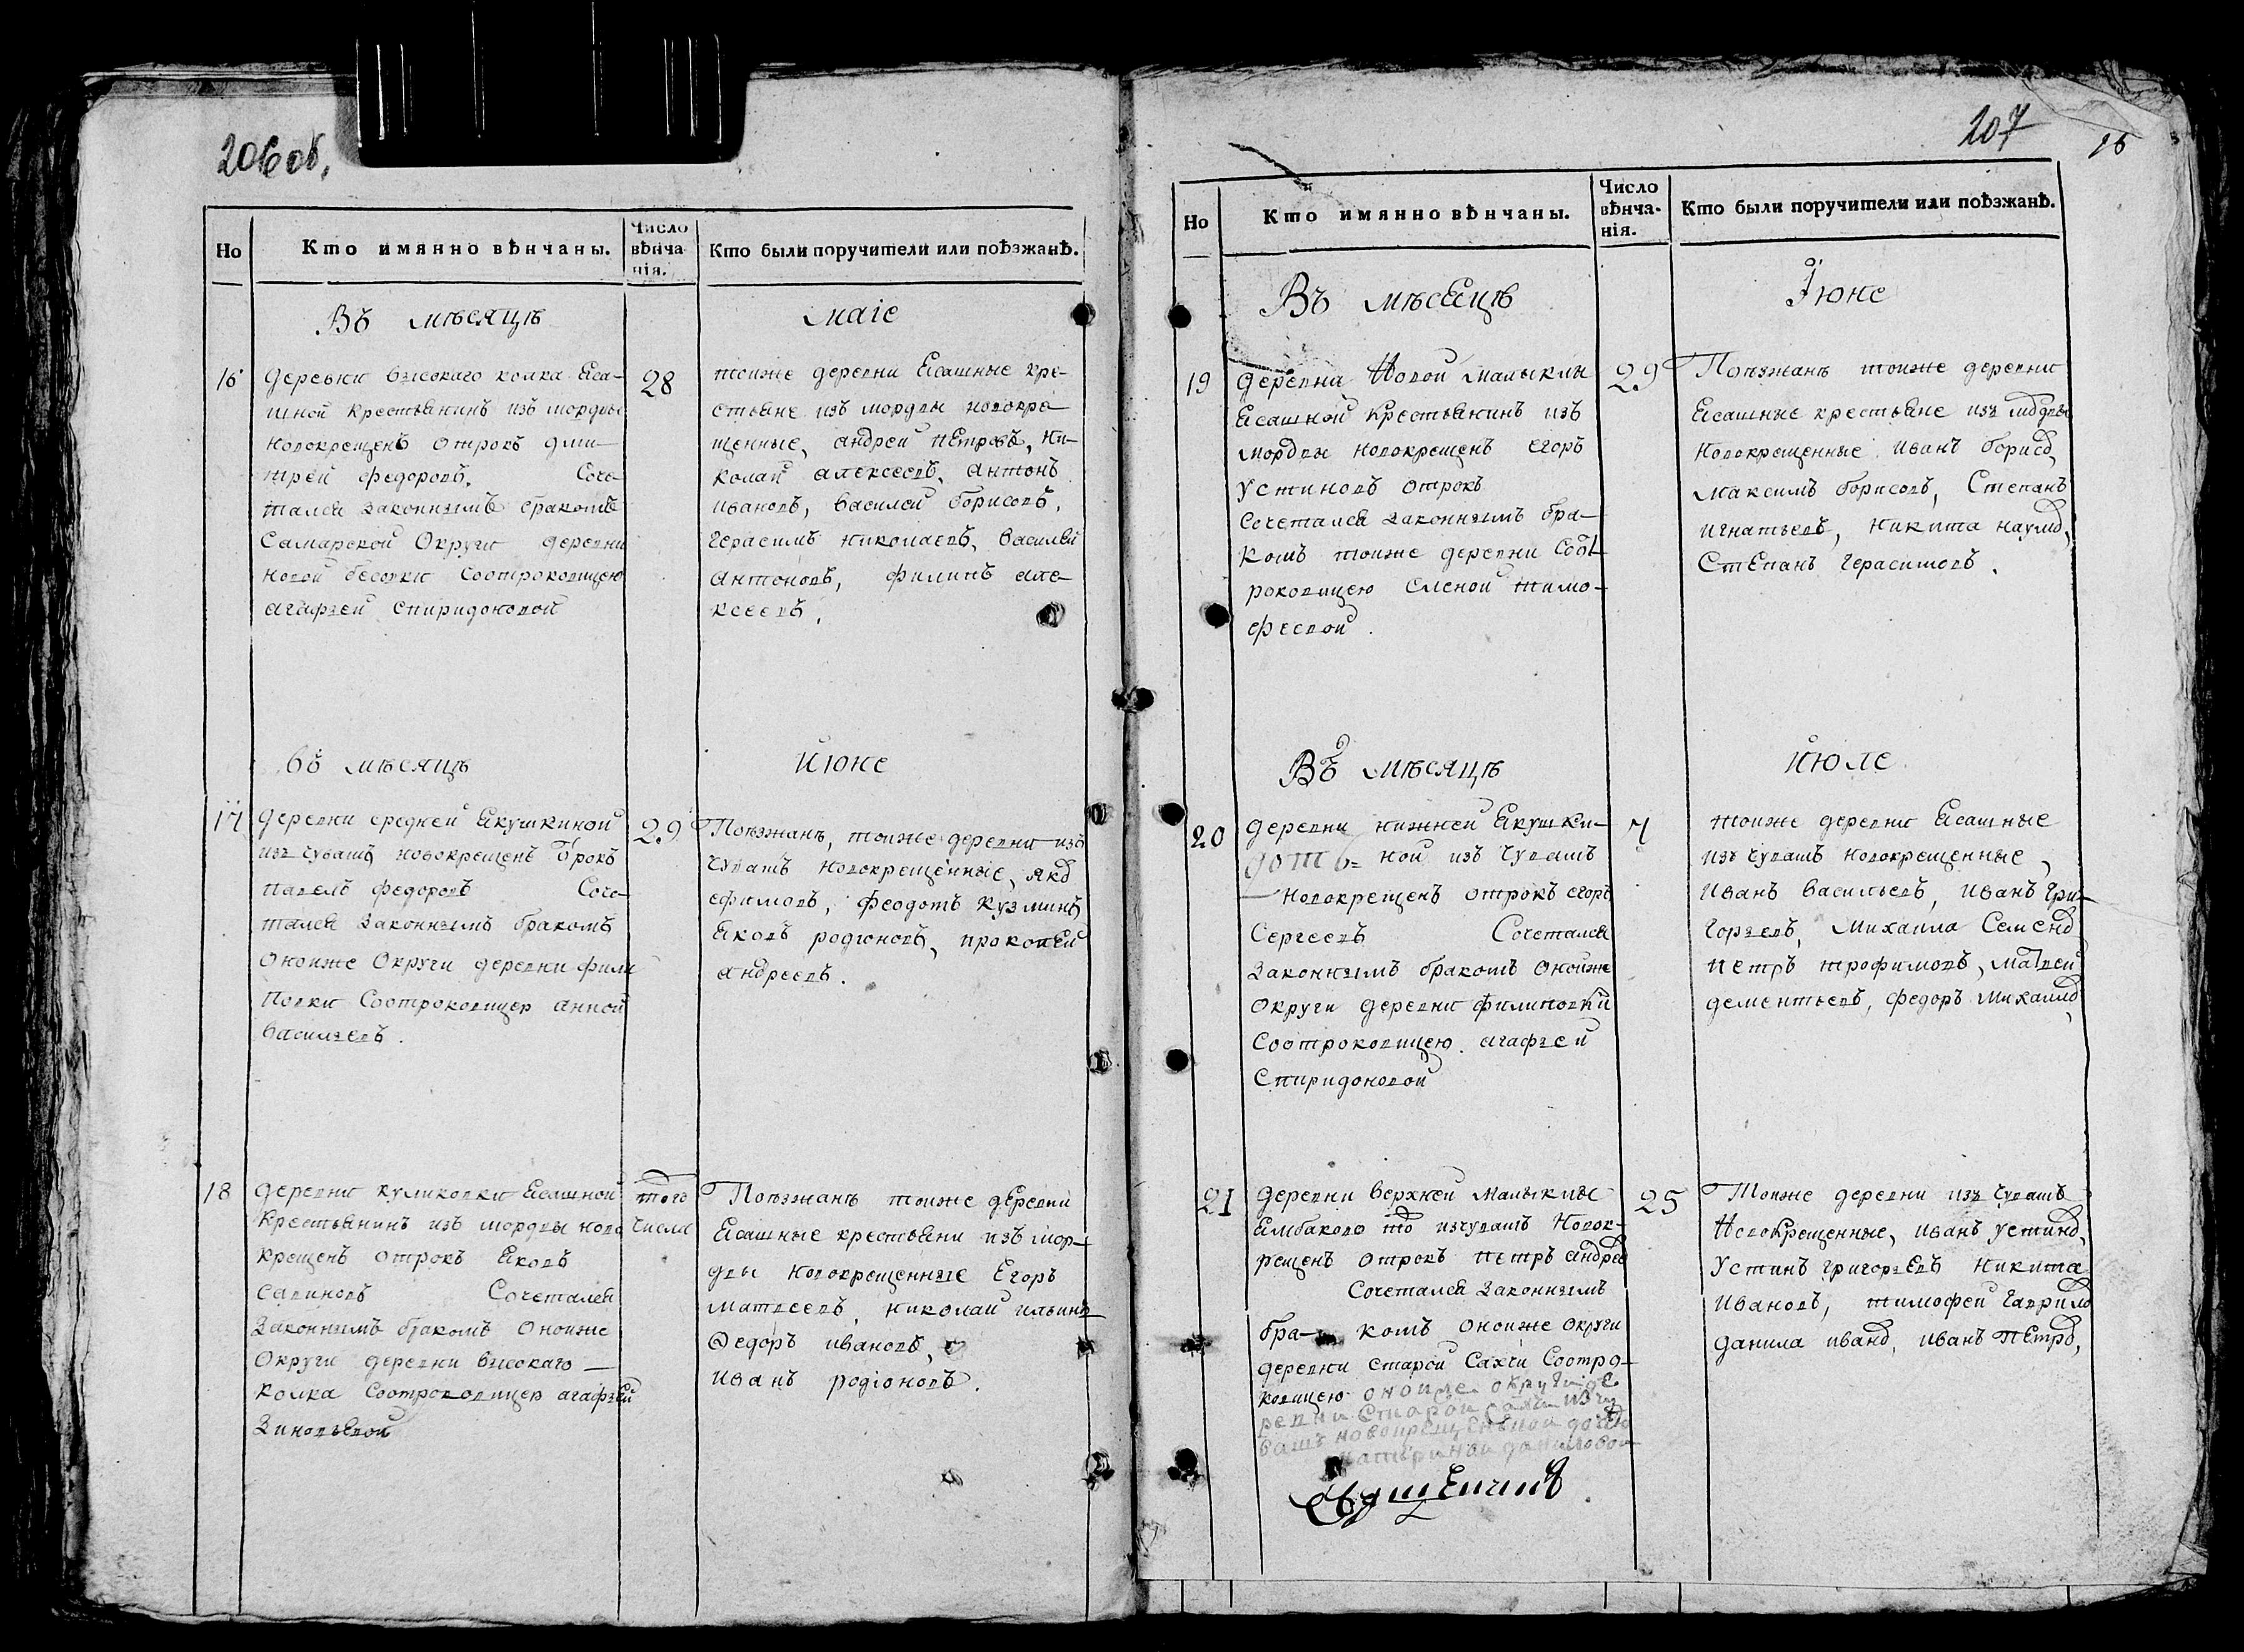 206 об.
Но
Кто имянно вѣнчаны.
Число вѣнча-нія.
Кто были поручители или поѣзжанѣ.
Въ мѣсяцѣ
маіе
16
деревни высокаго колка Ясаш-
шной крестьянинъ изъ мордвы
новокрещенъ отрокъ дми-
трей федоровъ. Соче-
тался законнымъ бракомъ
Самарской Округи деревни
новой бесовки Соотроковицею
агафьей спиридоновой
28
тоиже деревни Ясашные кре-
стьяне изъ мордвы новокре-
щенные, андрей петровъ, ни-
колай алексеевъ, антонъ
ивановъ, василей борисовъ,
герасимъ николаевъ, василей
антоновъ, филипъ але-
ксеевъ.
въ мѣсяцѣ
июне
17
деревни средней Якушкиной
изъ чувашъ новокрещенъ отрокъ
павелъ федоровъ Соче-
тался законнымъ бракомъ
оноиже Округи деревни фили
повки Соотроковицею анной
васильевъ.
29
Поѣзжанѣ, тоиже деревни изъ
чувашъ новокрещенные, яков
ефимовъ, феодотъ кузминъ
Яковъ родіоновъ, прокопей
андреевъ.
18
деревни куликовки Ясашной
крестьянинъ изъ мордвы ново
крещенъ отрокъ Яковъ
савиновъ Сочетался
законнымъ бракомъ оноиже
Округи деревни высокаго
колка Соотроковицею агафьей
Зиновьевой
того
числа
Поѣзжанѣ тоиже деревни
Ясашные крестьяни изъ мор-
двы новокрещенные Егоръ
матвеевъ, николай ильинъ
Федоръ ивановъ,
иванъ родіоновъ.
207
16
Но
Кто имянно вѣнчаны.
Число вѣнча-нія.
Кто были поручители или поѣзжанѣ.
Въ мѣсЯцѣ
Iюне
19
деревна Новой малыклы
Ясашной крестьянинъ изъ
мордвы новокрещенъ егоръ
устиновъ отрокъ
Сочетался законнымъ бра-
комъ тоиже деревни Соот-
роковицею еленой тимо-
феевой.
29
Поѣзжанѣ тоиже деревни
Ясашные крестьяне изъ мордвы
новокрещенные иванъ борисов,
максимъ борисовъ, Степанъ
игнатьевъ, никита наумов,
Степанъ герасимовъ.
Въ мѣсяцѣ
июле
20
деревни нижней Якушки-
ной изъ чувашъ
новокрещенъ отрокъ егоръ
Сергеевъ Сочетался
законнымъ бракомъ оноиже
округи деревни филиповки
Соотроковицею агафьей
Спиридоновой
7
тоиже деревни Ясашные
изъ чувашъ новокрещенные,
иванъ васильевъ, иванъ гри-
горьевъ, михаила Семенов
петръ трофимовъ, матвей
дементьевъ, федоръ михаилов,
21
деревни верхней малыклы
Ямбаково то изчувашъ новок-
рещенъ отрокъ петръ андреев
Сочетался законнымъ
бра- комъ оноиже округи
деревни старой Сахчи Соотро-
ковицею оноиже округи де
ревни старой сахчи изчу
вашъ новокрещеньной дочерю
катериной даниловой
25
Тоиже деревни изъ чувашъ
Новокрещенные, иванъ устинов,
устинъ григорьевъ никита
ивановъ, тимофей гаврилов
данила иванов, иванъ петров,